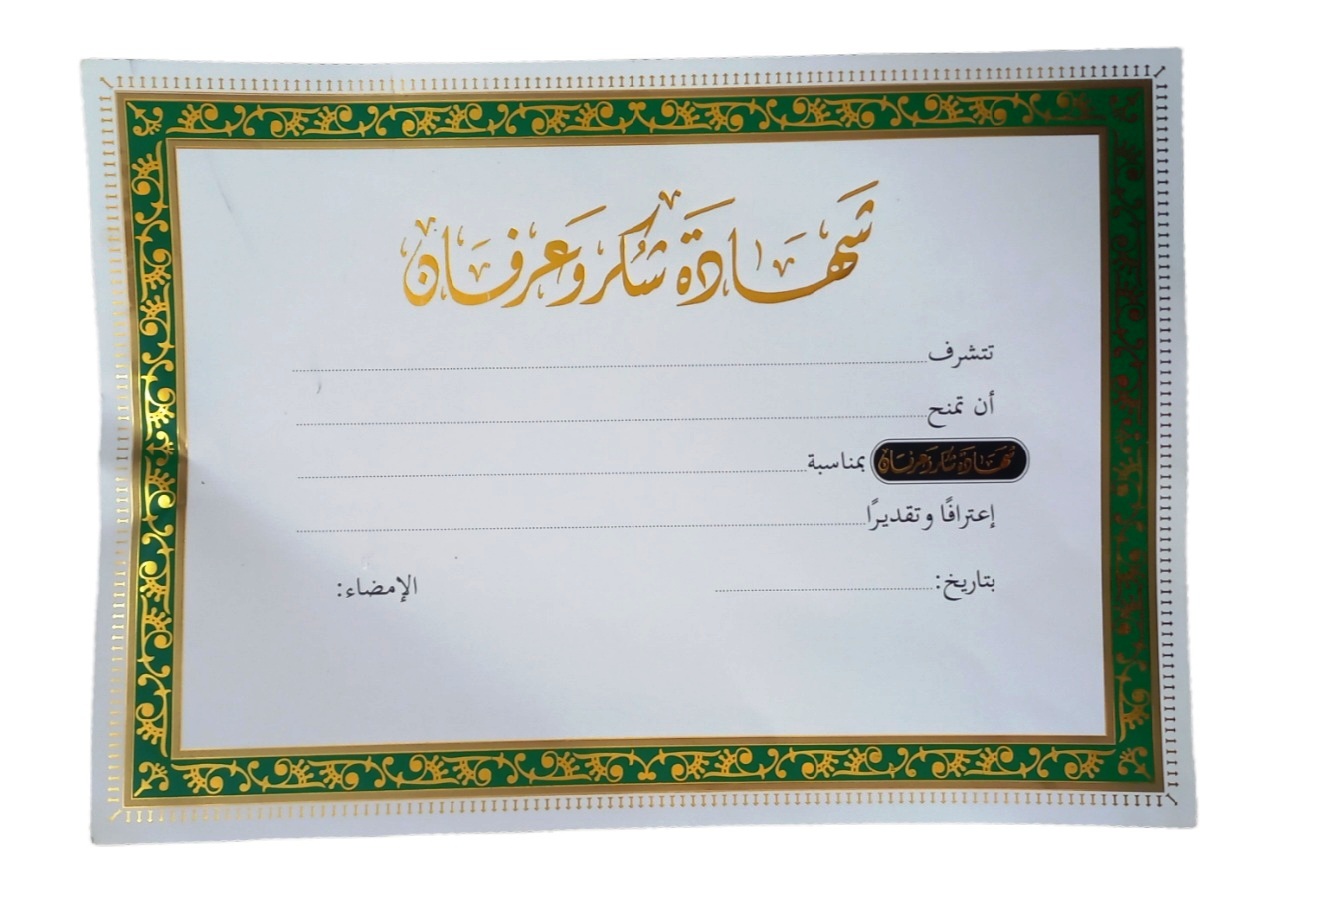 شهادة شكر وعرفان
تتشرف
أن تمنح
شهادة شكر وعرفان بمناسبة
إعترافًا و تقديرًا
بتاريخ: الإمضاء: